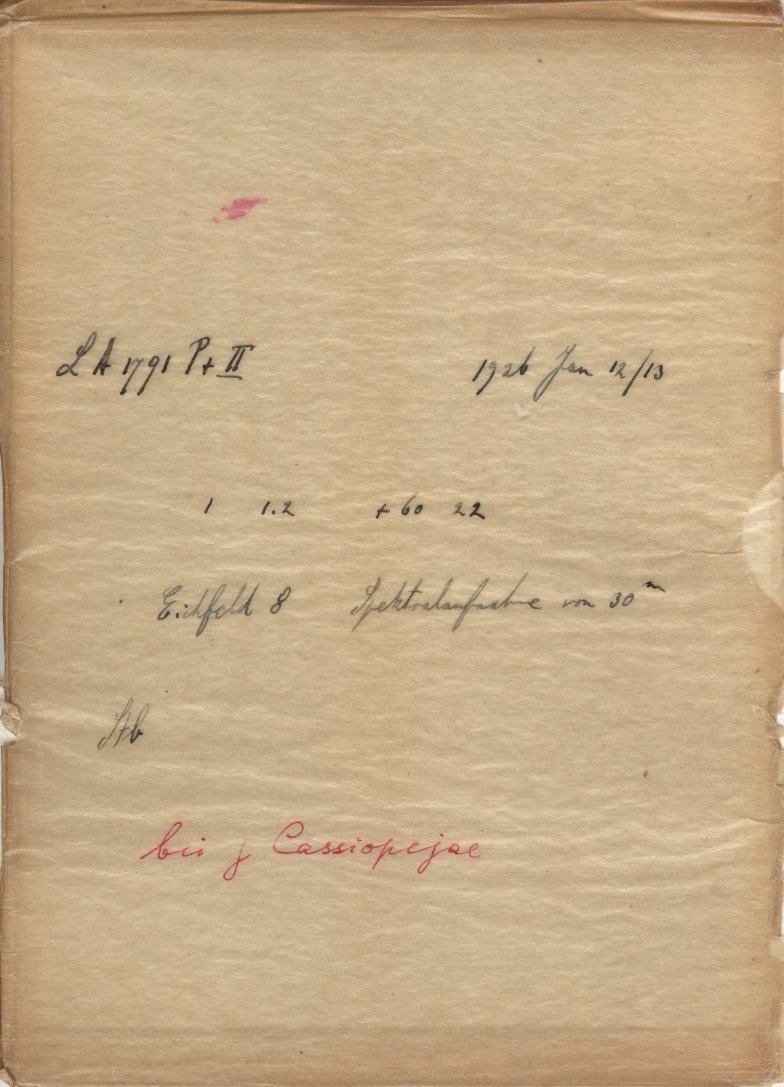 LA 1791 Pt II 1926 Jan 12/13
1 1.2 +60 22
Eichfeld 8 Spektralaufnahme von 30m
Stb
bei γ Cassiopejae